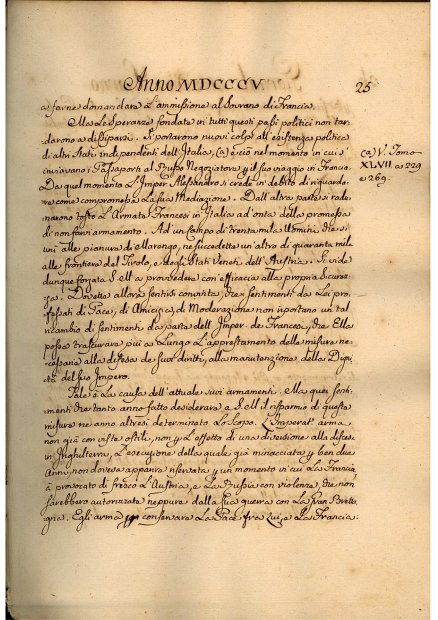 Anno MDCCCV.
25
a farne domandare l'ammissione al Sovrano di Francia.
Ma le Speranze fondate in tutti questi passi politici non tar-
darono a dissiparsi. Si portarono nuovi colpi all'esistenza politica
di altri Stati independenti dell'Italia, (a) e ciò nel momento in cui s'
inviavano i Passaporti al Russo Negoziatore p il suo viaggio in Francia.
Da quel momento l'Imper. Alessandro si crede in debito di riguarda-
re come compromessa la sua Mediazione. Dall'altra parte si rade-
narono tosto l'Armate Francesi in Italia ad onta della promessa
di non farvi armamento. Ad un Campo di trenta mila Uomini, che si
unì alle pianure di Marengo, ne succedette un'altro di quaranta mila
alle frontiere del Tirolo, e degli Stati Veneti dell'Austria. Si vide
dunque forzata S. M. a provvedere con efficacia alla propria sicurez-
za. Dovette allora sentirsi convinta, che i sentimenti da Lei pro-
fessati di Pace, di Amicizia, di Moderazione non riportano un tal
ricambio di sentimenti da parte dell'Imper. de Francesi, che Ella
possa trascurare più a Lungo l'apprestamento delle misure ne-
cessarie alla difesa de suoi diritti, alla manutenzione della Digni-
tà del suo Impero.
Tale è la causa dell'attuale suoi armamenti. Ma quei senti-
menti che tanto anno fatto desiderare a S. M. il risparmio di questa
misura ne anno altresì determinato lo Scopo. L'Imperat. arma
non già con viste ostili, non p l'effetto di una diversione alla discesa
in Inghilterra, l'esecuzione della quale già minacciata p ben due
Anni, non doveva apparire riservata p un momento in cui la Francia
à provocato di fresco l'Austria, e la Russia con violenza, che non
sarebbero autorizzate neppure dalla sua guerra con la Gran Bretta-
gna. Egli arma p conservare la Pace fra Lui, e la Francia:
(a) V. Tomo
XLVII. a 229
e 269.